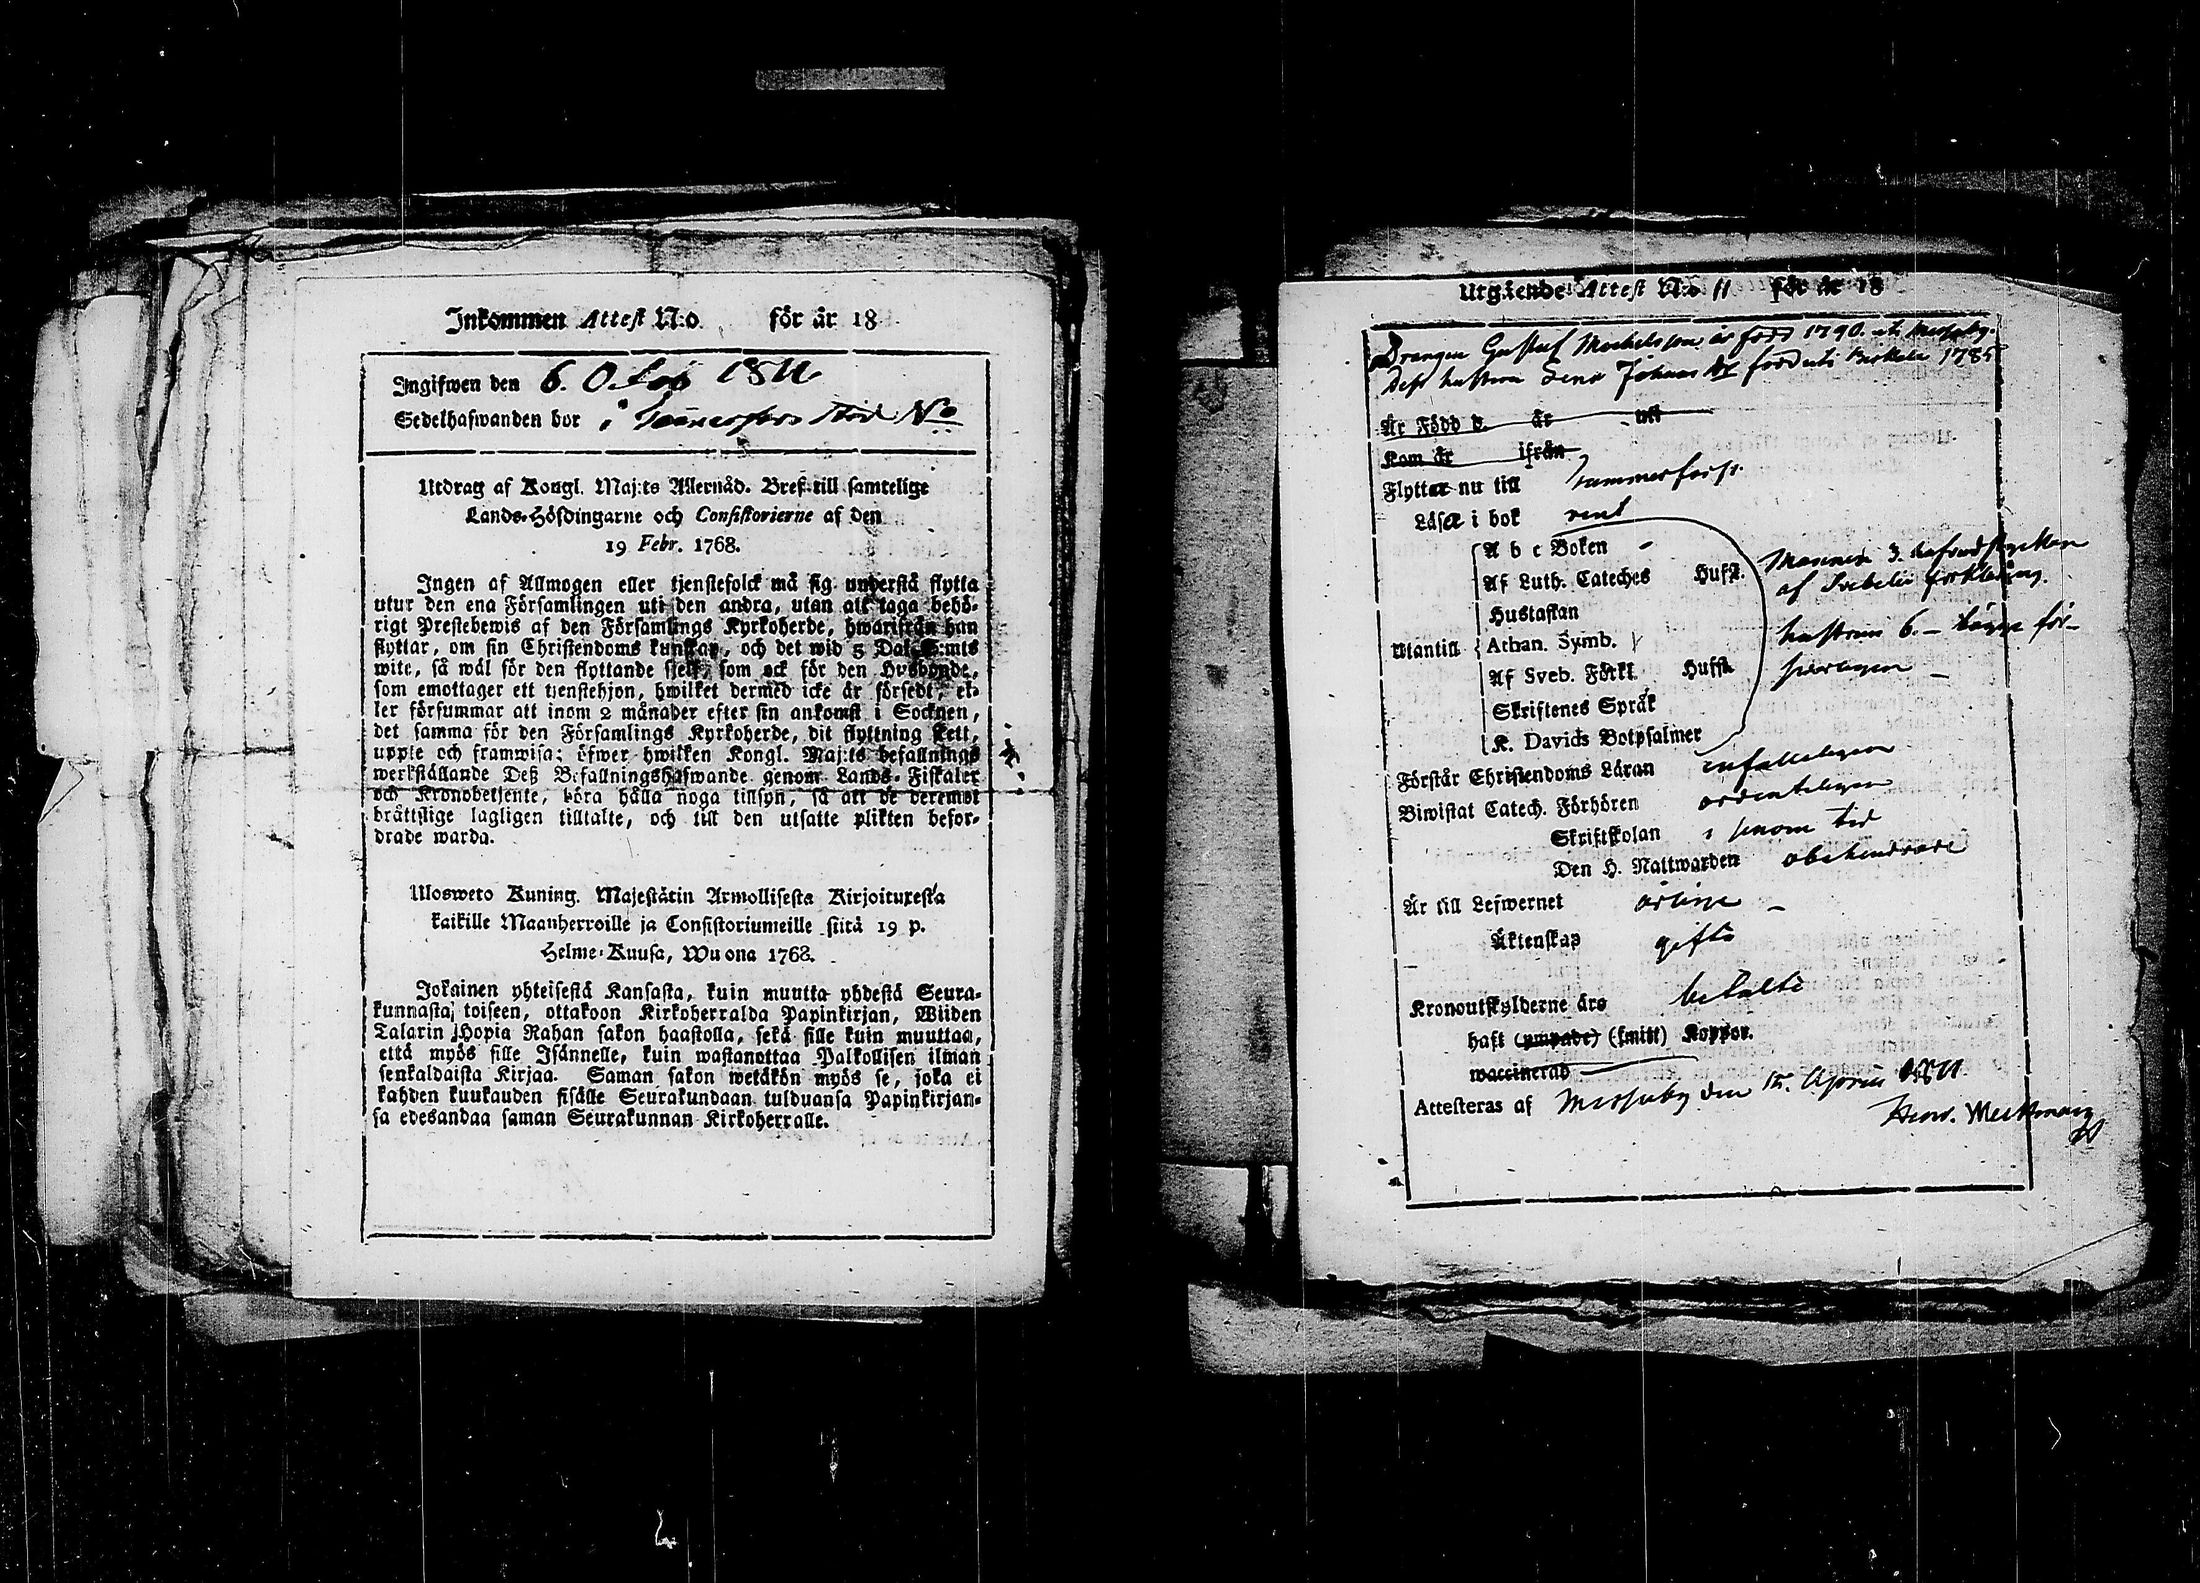 Inkommen Attest N:o för år 18
Ingifwen den 6. 1811
Sedelhafwanden bor i
Utdrag af Kongl. Maj:ts Allernåd. Bref till samtelige
Lands-Höfdingarne och Consistorierne af den
19 Febr. 1768.
Ingen af Allmogen eller tjenstefolck må sig understå flytta
utur den ena Församlingen uti den andra, utan att taga behö-
rigt Prestebewis af den Församlings Kyrkoherde, hwarifrån han
flyttar, om sin Christendoms kunskap, och det wid 5 Dal. S:mts
wite, så wäl för den flyttande sjelf, som ock för den Husbonde,
som emottager ett tjenstehjon, hwilket dermed icke är försedt, el-
ler försummar att inom 2 månader efter sin ankomst i Socknen,
det samma för den Församlings Kyrkoherde, dit flyttning skett,
uppte och framwisa; öfwer hwilken Kongl. Maj:ts befallnings
werkställande Deß Befallningshafwande genom Lands-Fiskaler
och Kronobetjente, böra hålla noga tillsyn, så att de deremot
brättslige lagligen tilltalte, och till den utsatte plikten befor-
drade warda.
Ulosweto Kuning. Majestätin Armollisesta Kirjoituxesta
kaikille Maanherroille ja Consistoriumeille siitä 19 p.
Helme-Kuusa, Wuona 1768.
Jokainen yhteisestä Kansasta, kuin muutta yhdestä Seura-
kunnasta toiseen, ottakoon Kirkoherralda Papinkirjan, Wiiden
Talarin Hopia Rahan sakon haastolla, sekä sille kuin muuttaa,
että myös sille Isännelle, kuin wastanottaa Palkollisen ilman
senkaldaista Kirjaa. Saman sakon wetäkön myös se, joka ei
kahden kuukauden sisälle Seurakundaan tulduansa Papinkirjan-
sa edesandaa saman Seurakunnan Kirkoherralle.
Utgående Attest N:o 11 för år 18
Drangen Gustaf Michelsson är född 1790. uti Messuby.
Dess hustru Lena Johans dr född uti Birkala 1785
Är Född d. år uti
Kom år ifrån
Flyttar nu till Tammerfors.
Läsa i bok rent
Utantill
A b c Boken
Af Luth. Cateches Hufst.
Hustaflan
Athan. Symb.
Af Sveb. Förkl. Hufst.
Skriftenes Språk
K. Davids Botpsalmer
Mannen 3. hufvudstycken
af Svebelii förklaring.
hustrun 6.
Förstår Christendoms Läran enfaldeligen
Biwistat Catech. Förhören ordenteligen
Skriftskolan i sinom tid
Den H. Nattwarden obehindrade
Är till Lefwernet ärlige
Äktenskap gifte
Kronoutskylderne äro betalte
haft (ympade) (smitt) Koppor.
waccinerad
Attesteras af Messuby den 15. April 1811
Henr.